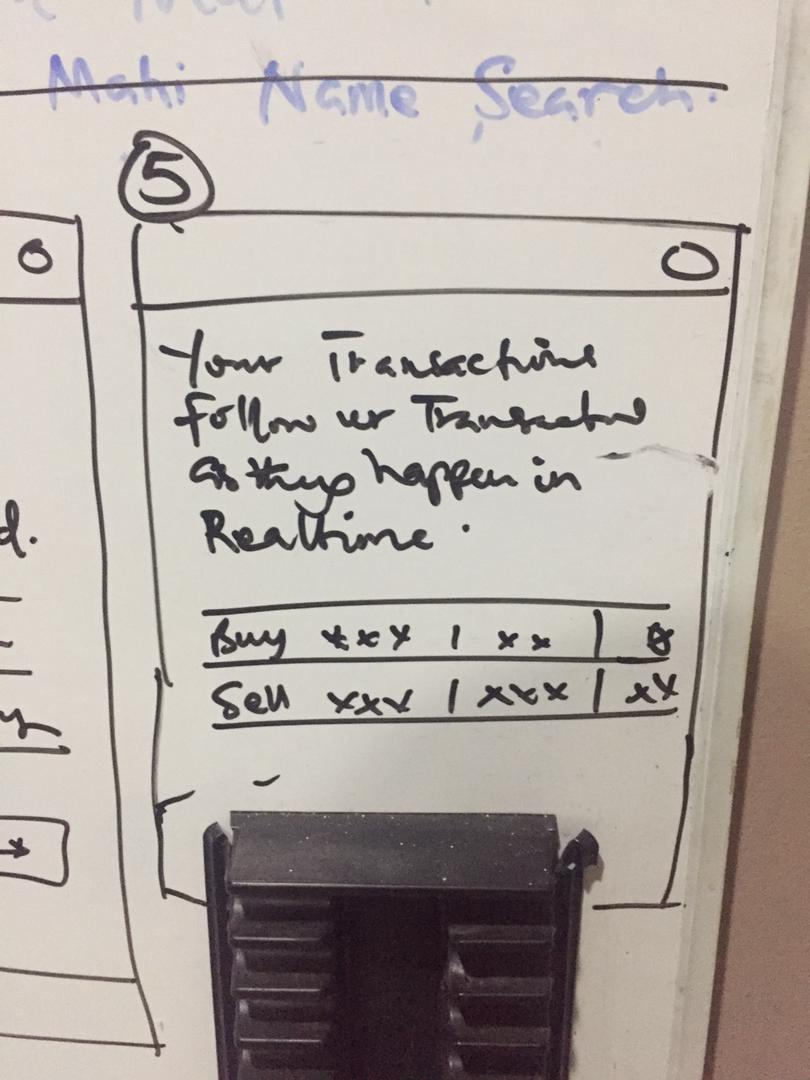 Mahi Name Search.
5
O
O
Your Transactions
follow ur Transaction
as they happen in
Realtime.
d.
Buy xxx | xx |
Sell xxx | xxx | xx
y